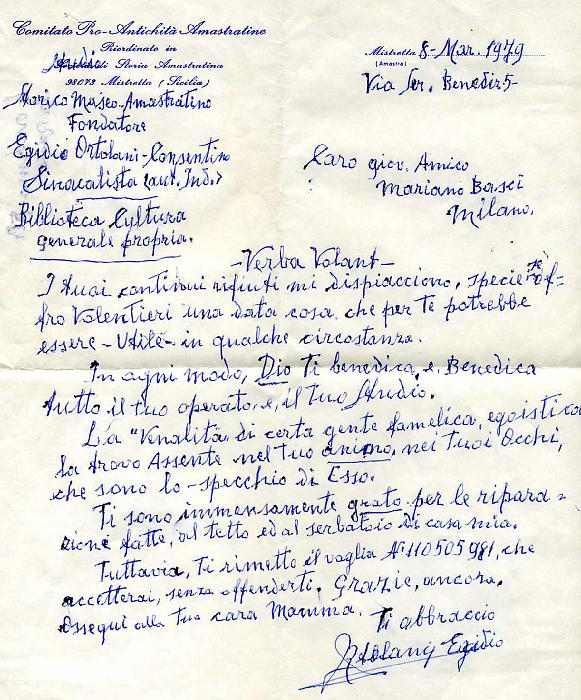 Comitato Pro-Antichità Amastratine
Riordinato in
Studio
di Storia Amastratina
98073 Mistretta (Sicilia)
Storico Museo-Amastratino
Fondatore
Egidio Ortolani-Consentino
Sinacalista (aut. Ind.)
Biblioteca Cultura
generale propria.
Mistretta 8-Mar. 1979
(Amastra)
Via Ser. Benedir 5-
Caro giov. Amico
Mariano Basci
Milano.
-Verba Volant-
I tuoi continui rifiuti mi dispiacciono, specie se òf=
fro Volentieri una data cosa, che per te potrebbe
essere - Utile - in qualche circostanza.
In ogni modo, Dio Ti benedica, e, Benedica
tutto il tuo operato, e, il Tuo Studio.
La "Venalità" di certa gente famelica, egoistica
la trovo Assente nel Tuo animo, nei Tuoi Occhi,
che sono lo - specchio di Esso.
Ti sono immensamente grato per le ripara=
zione fatte, al tetto ed al serbatoio di casa mia.
Tuttavia, Ti rimetto il vaglia N° 110505981, che
accetterai, senza offenderti. Grazie, ancora.
Ossequi alla Tua cara Mamma.
Ti abbraccio
Ortolani Egidio